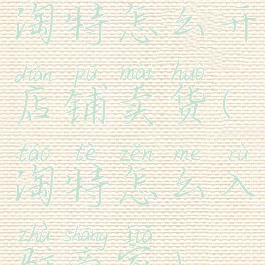 淘特怎么开
diàn pù mài huò
店铺卖货(
táo tè zěn me rù
淘特怎么入
zhù shāng jiā
驻商家)